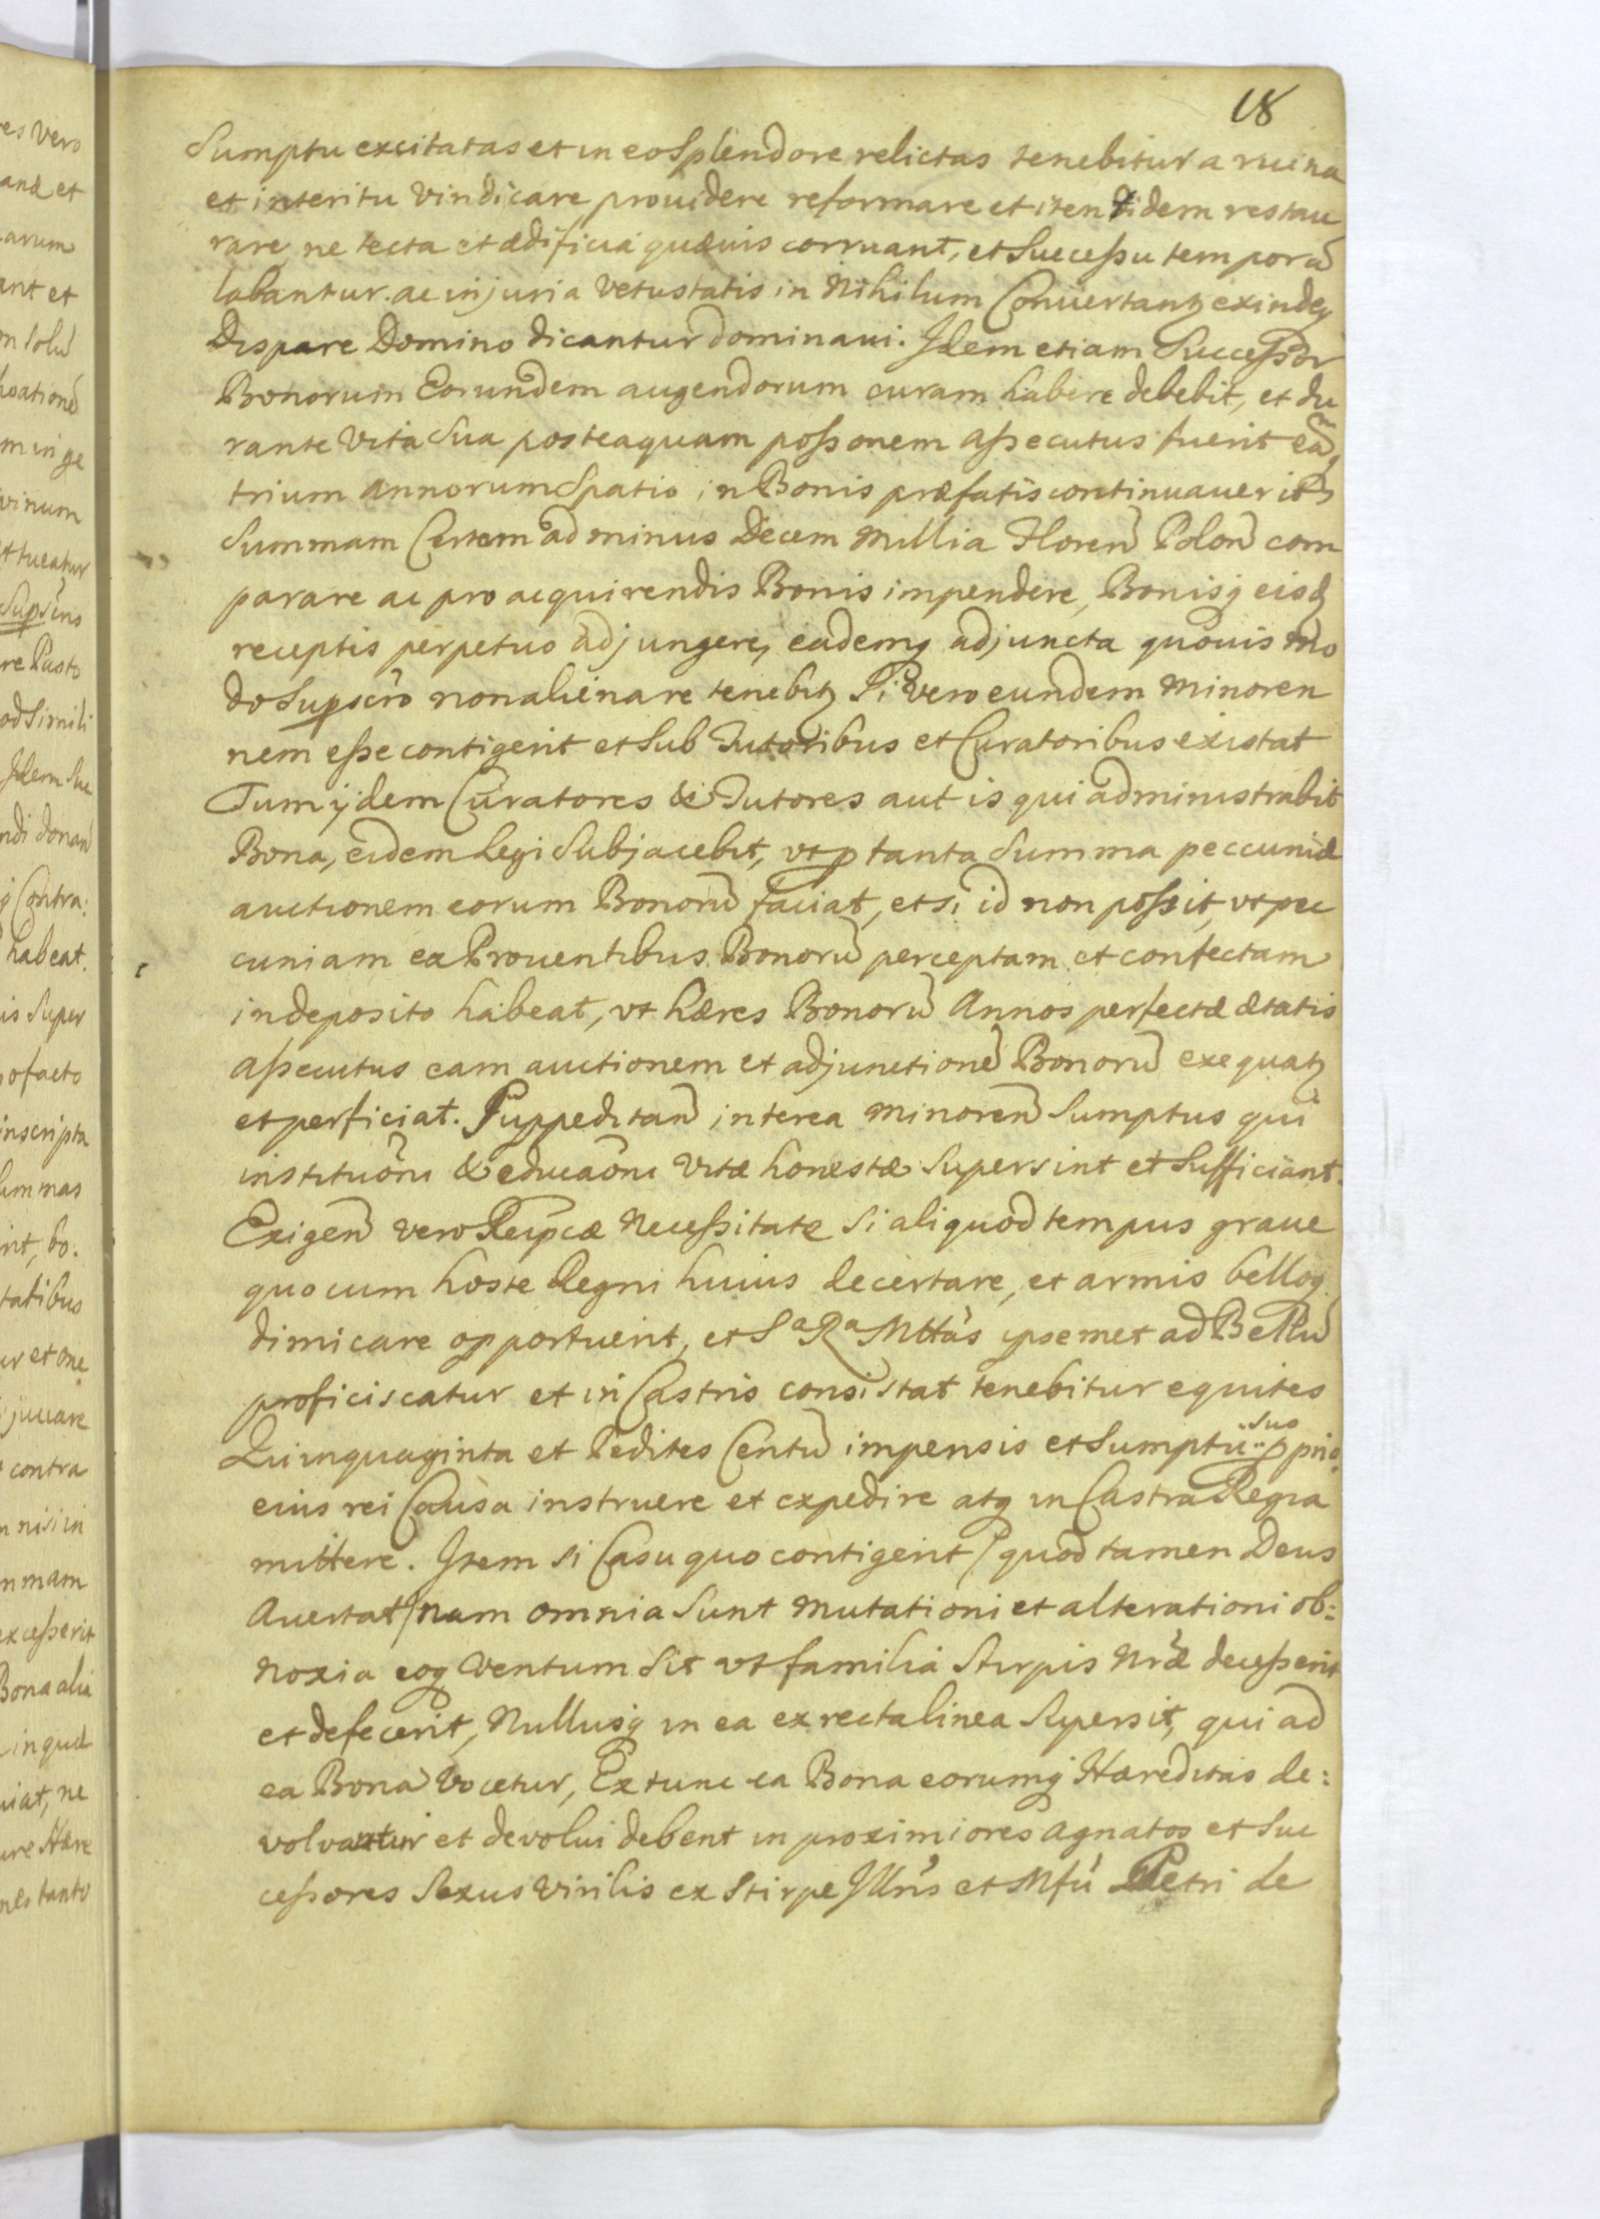 18
Sumptu excitatas et in eo Splendore relictas tenebitur a ruina
et interitu vindicare prouidere reformare et itentidem restau
rare, ne tecta et ædificia quæuis corruant, et Successu temporū
labantur. ac injuria vetustatis in Nihilum Conuertantȝ exindeq
Dispare Domino dicantur dominaui. Idem etiam Successor
Bonorum Eorundem augendorum curam habere debebit, et du
rante vita Sua posteaquam poss onem assecutus fuerit eāq
trium annorum Spatio in Bonis præfatis continuauerit
Summam Certam ad minus Decem Millia Floren Polon com
parare ac pro acquirendis Bonis impendere, Bonisq eisd
receptis perpetuo adjungere, eademq adjuncta quouis mo
do Supscrō non alienare tenebitȝ Si vero eundem minoren
nem esse contigerit et Sub Tutoribus et Curatoribus existat
Tum ijdem Curatores & Tutores aut is qui administrabit
Bona, eidem Legi Subjacebit, vt p tanta Summa peccuniæ
auctionem eorum Bonorū faciat, et si id non possit, vt pec
cuniam ex Prouentibus Bonorū perceptam et confectam
in deposito habeat, vt hæres Bonorū Annos perfectæ ætatis
assecutus eam auctionem et adjunctionē Bonorū exequatȝ
et perficiat. Suppeditan interea minoren Sumptus qui
institutiōni & educaōni vitæ honestæ Supersint et Sufficiant.
Exigen vero Reipcæ Necessitate si aliquod tempus graue
quo cum hoste Regni huius decertare, et armis belloq
dimicare opportuerit, et Sa Ra Mttas ipsemet ad Bellū
proficiscatur et in Castris consistat tenebitur equites
Quinquaginta et Pedites Centū impensis et Sumptu suo pprio
eius rei Causa instruere et expedire atq in Castra Regia
mittere. Item si Casu quo contigerit / quod tamen Deus
Auertat / nam omnia Sunt mutationi et alterationi ob:
noxia eoq ventum sit vt familia Stirpis Nræ decesserit
et defecerit, Nullusq in ea ex recta linea Supersit, qui ad
ea Bona vocetur, Ex tunc ea Bona eorumq Hæreditas de:
volvantur et devolui debent in proximiores Agnatos et Suc
cessores Sexus virilis ex Stirpe Illris et Mfci Petri de